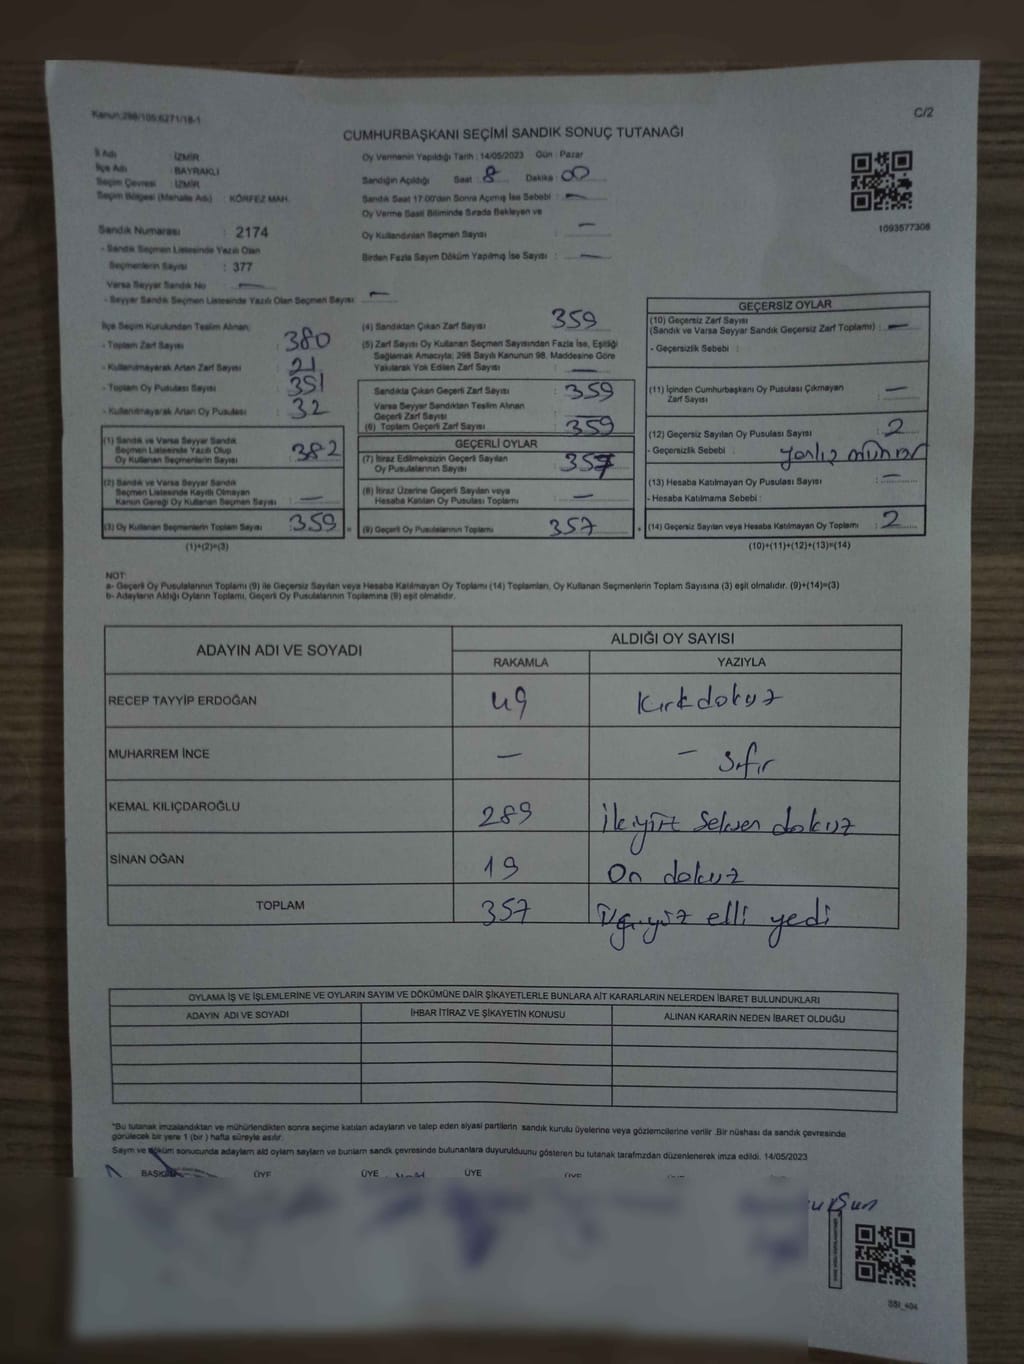 Kanun:298/105;6271/18-1
C/2
CUMHURBAŞKANI SEÇİMİ SANDIK SONUÇ TUTANAĞI
İl Adı İZMİR
İlçe Adı : BAYRAKLI
Seçim Çevresi : İZMİR
Seçim Bölgesi (Mahalle Adı) : KÖRFEZ MAH.
Sandık Numarası : 2174
- Sandık Seçmen Listesinde Yazılı Olan
Seçmenlerin Sayısı : 377
Varsa Seyyar Sandık No —
- Seyyar Sandık Seçmen Listesinde Yazılı Olan Seçmen Sayısı —
Oy Vermenin Yapıldığı Tarih : 14/05/2023 Gün : Pazar
Sandığın Açıldığı Saat : 8 Dakika : 00
Sandık Saat 17.00'den Sonra Açılmış İse Sebebi : —
Oy Verme Saati Bitiminde Sırada Bekleyen ve
Oy Kullandırılan Seçmen Sayısı : —
Birden Fazla Sayım Döküm Yapılmış İse Sayısı : —
1093577306
İlçe Seçim Kurulundan Teslim Alınan;
- Toplam Zarf Sayısı : 380
- Kullanılmayarak Artan Zarf Sayısı : 21
- Toplam Oy Pusulası Sayısı : 351
- Kullanılmayarak Artan Oy Pusulası : 32
(1) Sandık ve Varsa Seyyar Sandık
Seçmen Listesinde Yazılı Olup
Oy Kullanan Seçmenlerin Sayısı : 382
(2) Sandık ve Varsa Seyyar Sandık
Seçmen Listesinde Kayıtlı Olmayan
Kanun Gereği Oy Kullanan Seçmen Sayısı : —
(3) Oy Kullanan Seçmenlerin Toplam Sayısı : 359
(1)+(2)=(3)
(4) Sandıktan Çıkan Zarf Sayısı : 359
(5) Zarf Sayısı Oy Kullanan Seçmen Sayısından Fazla İse, Eşitliği
Sağlamak Amacıyla; 298 Sayılı Kanunun 98. Maddesine Göre
Yakılarak Yok Edilen Zarf Sayısı : —
Sandıkta Çıkan Geçerli Zarf Sayısı : 359
Varsa Seyyar Sandıktan Teslim Alınan
Geçerli Zarf Sayısı
(6) Toplam Geçerli Zarf Sayısı : 359
GEÇERLİ OYLAR
(7) İtiraz Edilmeksizin Geçerli Sayılan
Oy Pusulalarının Sayısı : 357
(8) İtiraz Üzerine Geçerli Sayılan veya
Hesaba Katılan Oy Pusulası Toplamı : —
(9) Geçerli Oy Pusulalarının Toplamı : 357
GEÇERSİZ OYLAR
(10) Geçersiz Zarf Sayısı
(Sandık ve Varsa Seyyar Sandık Geçersiz Zarf Toplamı) : —
- Geçersizlik Sebebi :
(11) İçinden Cumhurbaşkanı Oy Pusulası Çıkmayan
Zarf Sayısı : —
(12) Geçersiz Sayılan Oy Pusulası Sayısı : 2
- Geçersizlik Sebebi : yanlış mühür
(13) Hesaba Katılmayan Oy Pusulası Sayısı : —
- Hesaba Katılmama Sebebi :
(14) Geçersiz Sayılan veya Hesaba Katılmayan Oy Toplamı : 2
(10)+(11)+(12)+(13)=(14)
NOT:
a- Geçerli Oy Pusulalarının Toplamı (9) ile Geçersiz Sayılan veya Hesaba Katılmayan Oy Toplamı (14) Toplamları, Oy Kullanan Seçmenlerin Toplam Sayısına (3) eşit olmalıdır. (9)+(14)=(3)
b- Adayların Aldığı Oyların Toplamı, Geçerli Oy Pusulalarının Toplamına (9) eşit olmalıdır.
ADAYIN ADI VE SOYADI ALDIĞI OY SAYISI
RAKAMLA YAZIYLA
RECEP TAYYİP ERDOĞAN 49 Kırkdokuz
MUHARREM İNCE — — Sıfır
KEMAL KILIÇDAROĞLU 289 İkiyüz Seksen dokuz
SİNAN OĞAN 19 On dokuz
TOPLAM 357 Üçyüz elli yedi
OYLAMA İŞ VE İŞLEMLERİNE VE OYLARIN SAYIM VE DÖKÜMÜNE DAİR ŞİKAYETLERLE BUNLARA AİT KARARLARIN NELERDEN İBARET BULUNDUKLARI
ADAYIN ADI VE SOYADI İHBAR İTİRAZ VE ŞİKAYETİN KONUSU ALINAN KARARIN NEDEN İBARET OLDUĞU
*Bu tutanak imzalandıktan ve mühürlendikten sonra seçime katılan adayların ve talep eden siyasi partilerin sandık kurulu üyelerine veya gözlemcilerine verilir .Bir nüshası da sandık çevresinde
görülecek bir yere 1 (bir ) hafta süreyle asılır.
Sayım ve döküm sonucunda adayların ald oyların sayların ve bunların sandık çevresinde bulunanlara duyurulduunu gösteren bu tutanak tarafmzdan düzenlenerek imza edildi. 14/05/2023
BAŞKAN ÜYE ÜYE ÜYE ÜYE
SSI_404